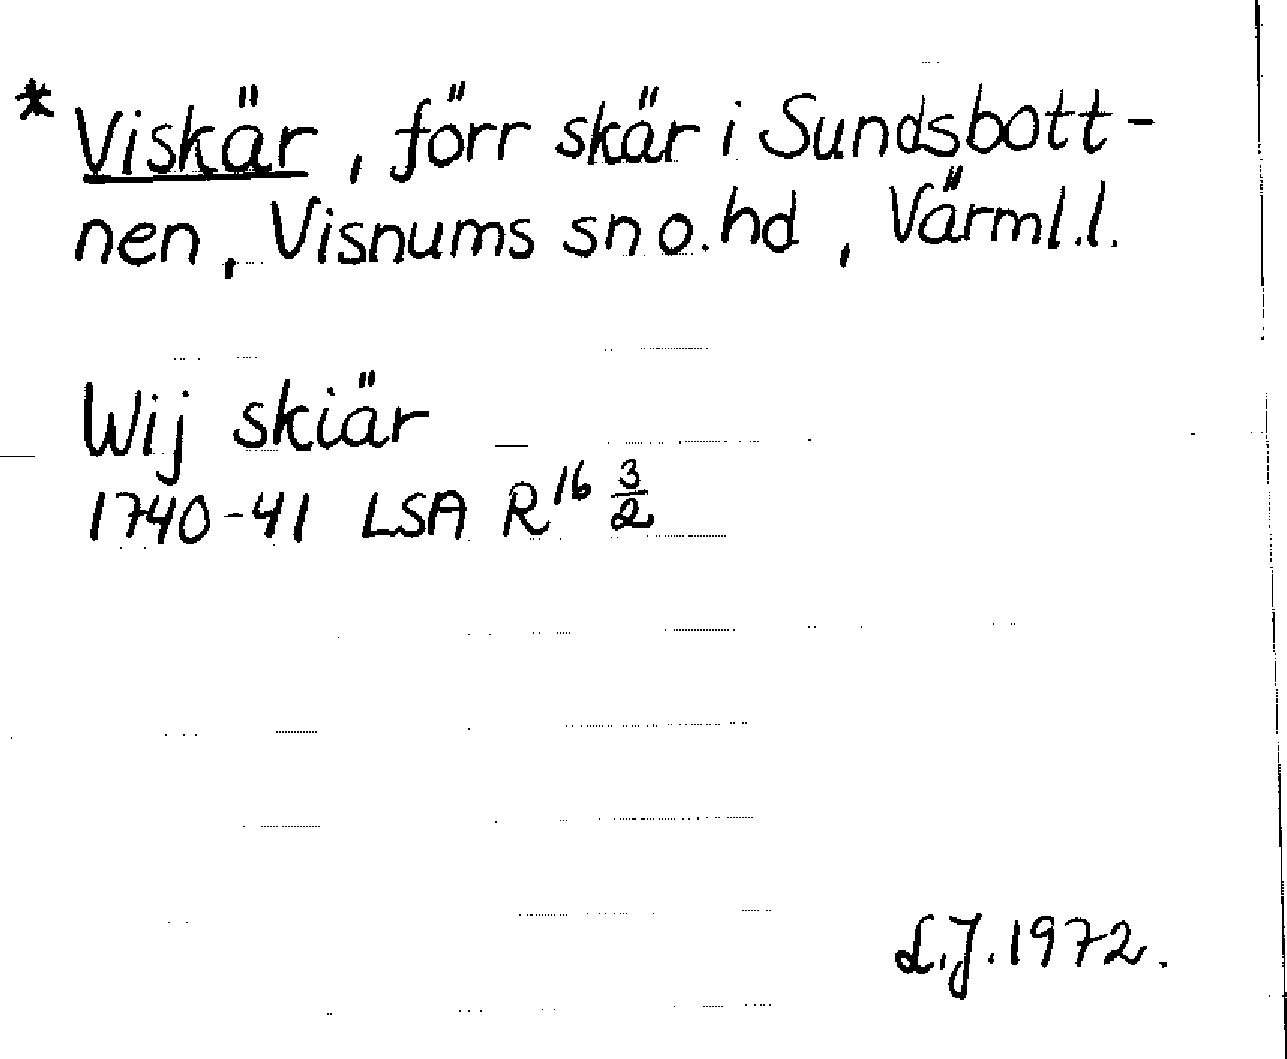 * Viskär, förr skär i Sundsbott-
nen, Visnums sn o. hd, Värml.l.
Wij skiär
1740-41 LSA R16 3/2
L.J. 1972.